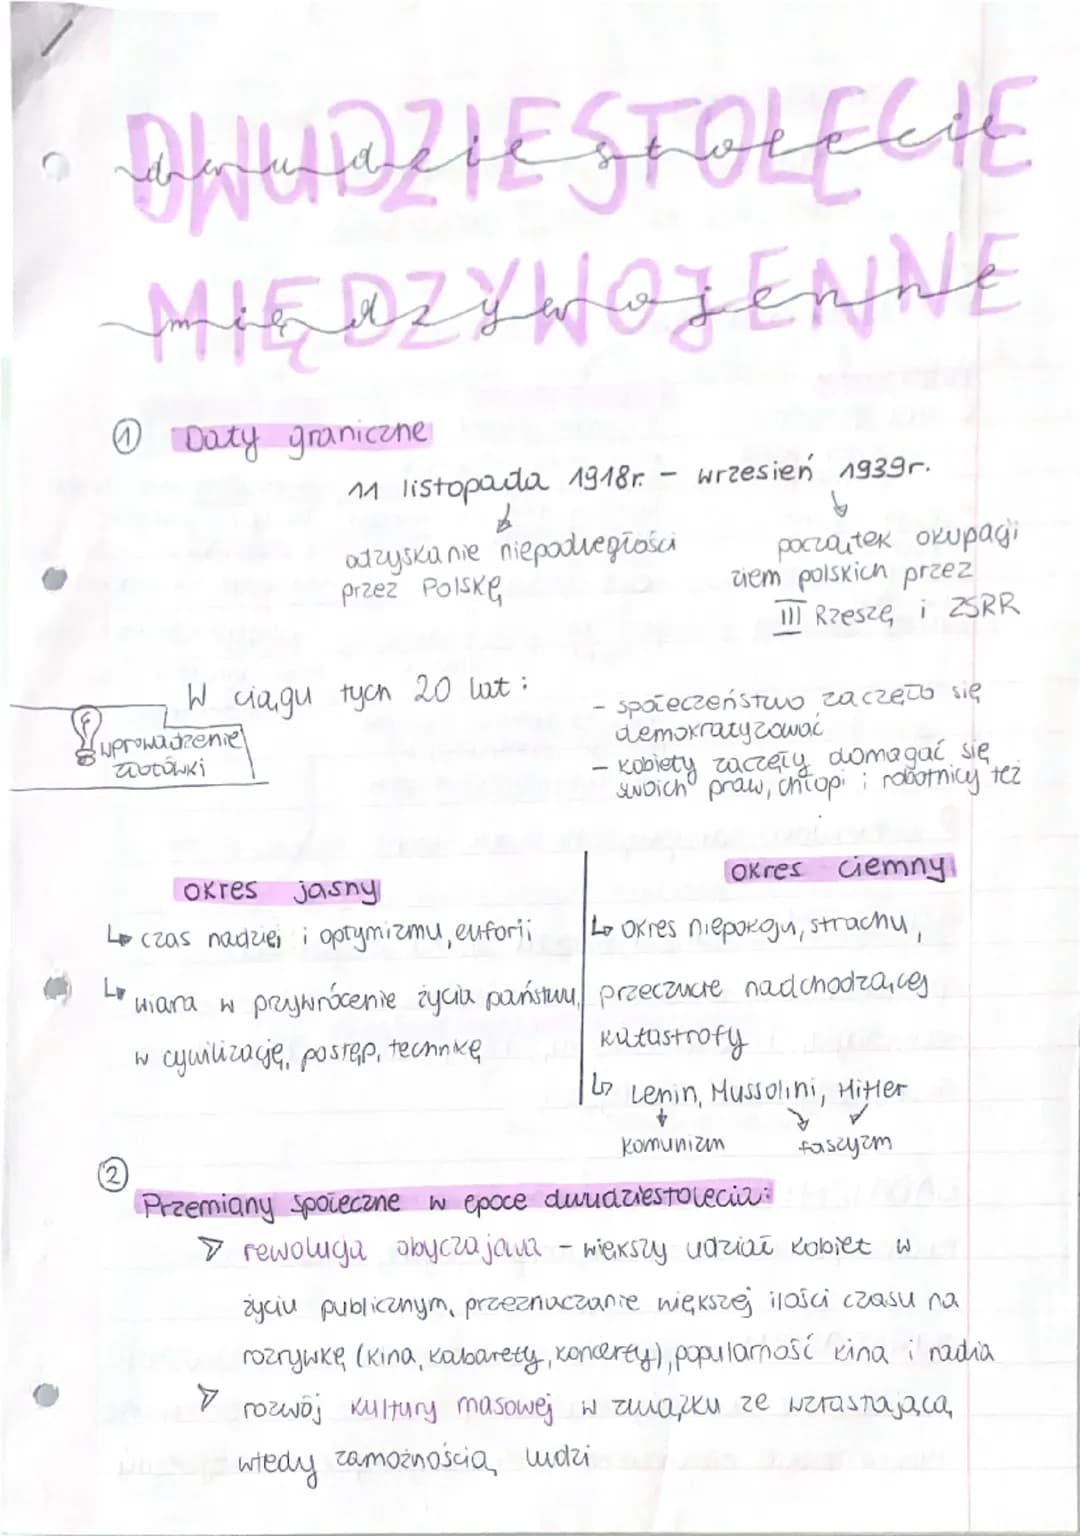 DWUDZIESTOLECIE
dwudziestolecie
MIĘDZYWOJENNE
międzywojenne
① Daty graniczne
11 listopada 1918r. – wrzesień 1939r.
odzyskanie niepodległości
przez Polskę
początek okupacji
ziem polskich przez
III Rzeszę i ZSRR
W ciągu tych 20 lat:
wprowadzenie
złotówki
- społeczeństwo zaczęło się
demokratyzować
- kobiety zaczęły domagać się
swoich praw, chłopi i robotnicy też
okres jasny
↳ czas nadziei i optymizmu, euforji
↳ wiara w przywrócenie życia państwu,
w cywilizację, postęp, technikę
okres ciemny
↳ okres niepokoju, strachu,
przeczucie nadchodzącej
katastrofy
↳ Lenin, Mussolini, Hitler
komunizm faszyzm
② Przemiany społeczne w epoce dwudziestolecia:
▷ rewolucja obyczajowa – większy udział kobiet w
życiu publicznym, przeznaczanie większej ilości czasu na
rozrywkę (kina, kabarety, koncerty), popularność kina i radia
▷ rozwój kultury masowej w związku ze wzrastającą
wtedy zamożnością ludzi